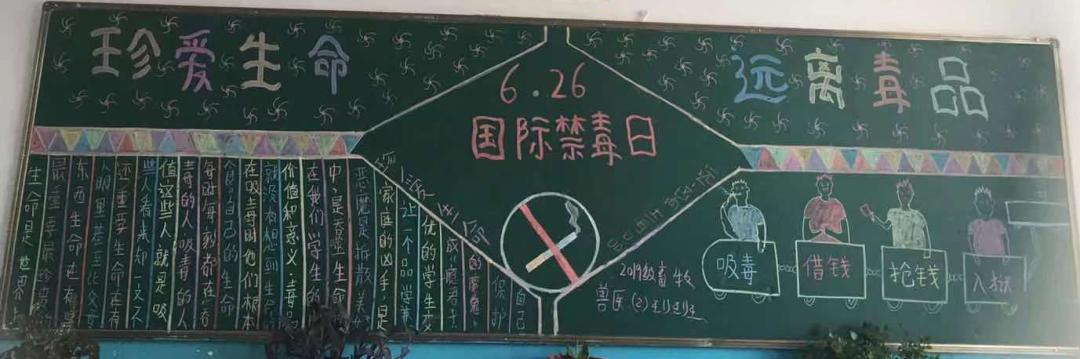 珍爱生命
6.26
国际禁毒日
远离毒品
生命是世界上
最重要最珍贵的
东西生命
人眼里甚至比父母
还重要生命还有
些人看来却一文不
值这些人就是吸
毒的人吸毒的人
每时每刻都在吞
食自己的生命
在吸毒时他们根本
就没有想到生命
价值和意义.毒品
在我们学生的
中,是吞噬生命
恶魔是拆散美好
家庭的凶手,是
让一个品学兼
优的学生变
成"瘾君子"
保护
自己
吸毒
借钱
抢钱
入狱
2019级畜牧
兽医(2)